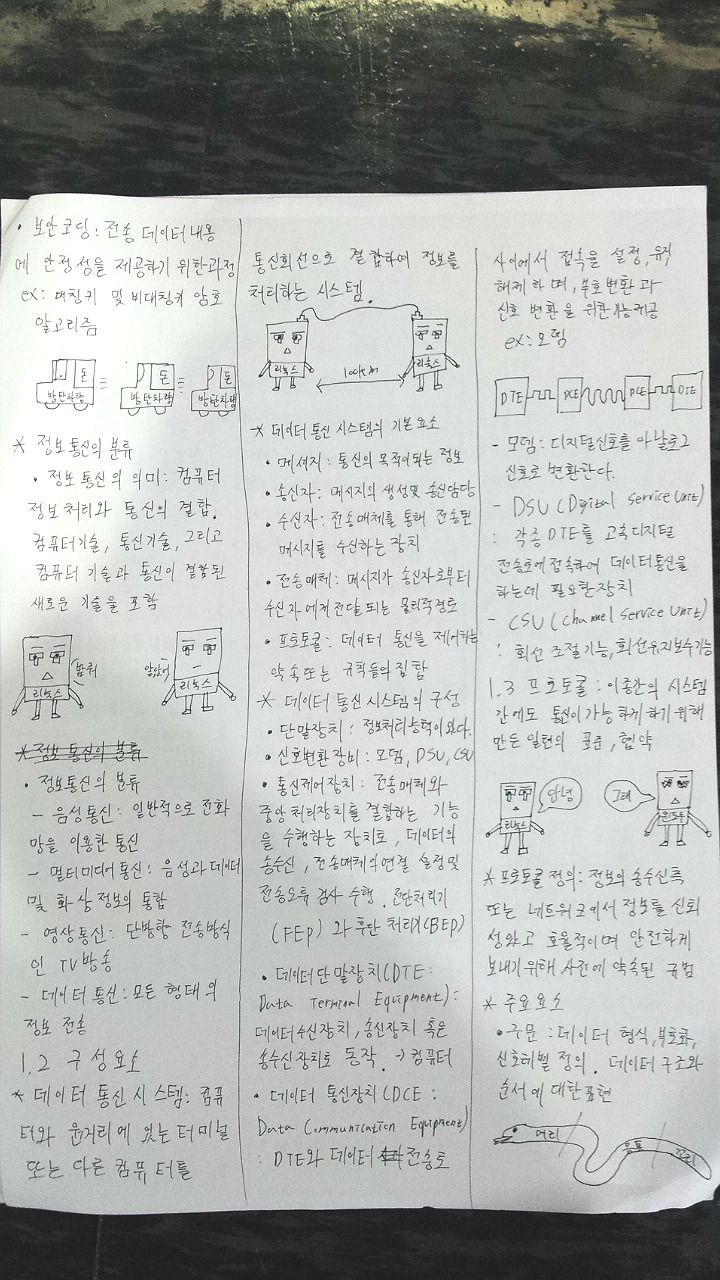 • 보안코딩: 전송 데이터 내용
에 안정성을 제공하기 위한 과정
ex: 대칭키 및 비대칭키 암호
알고리즘
돈 돈 돈
방탄차량 방탄차량 방탄차량
* 정보통신의 분류
• 정보통신의 의미: 컴퓨터
정보처리와 통신의 결합.
컴퓨터기술, 통신기술, 그리고
컴퓨터 기술과 통신이 결합된
새로운 기술을 포함
밥줘 알았어
리눅스 리눅스
* 정보 통신의 분류
• 정보통신의 분류
- 음성통신: 일반적으로 전화
망을 이용한 통신
- 멀티미디어 통신: 음성과 데이터
및 화상 정보의 통합
- 영상통신: 단방향 전송방식
인 TV 방송
- 데이터 통신: 모든 형태의
정보 전송
1.2 구성요소
* 데이터 통신 시스템: 컴퓨
터와 원거리에 있는 터미널
또는 다른 컴퓨터를
통신회선으로 결합하여 정보를
처리하는 시스템.
리눅스 리눅스
100km
* 데이터 통신 시스템의 기본요소
• 메세지: 통신의 목적이되는 정보
• 송신자: 메시지의 생성및 송신담당
• 수신자: 전송매체를 통해 전송된
메시지를 수신하는 장치
• 전송매체: 메시지가 송신자로부터
수신자에게 전달되는 물리적경로
• 프로토콜: 데이터 통신을 제어하는
약속또는 규칙들의 집합
* 데이터 통신시스템의 구성
• 단말장치: 정보처리능력이있다.
• 신호변환장비: 모뎀, DSU, CSU
• 통신제어장치: 전송매체와
중앙처리장치를 결합하는 기능
을 수행하는 장치로, 데이터의
송수신, 전송매체의연결 설정및
전송오류 검사 수행. 전단처리기
(FEP)와 후단 처리기(BEP)
• 데이터단말장치(DTE:
Data Terminal Equipment):
데이터수신장치, 송신장치 혹은
송수신장치로 동작. → 컴퓨터
• 데이터 통신장치(DCE:
Data Communication Equipment)
: DTE와 데이터 전송로
사이에서 접속을 설정, 유지
해제하며, 부호변환과
신호 변환을 위한기능제공
ex: 모뎀
DTE DCE DCE DTE
- 모뎀: 디지털신호를 아날로그
신호로 변환한다.
- DSU (Digital Service Unit)
: 각종 DTE를 고속디지털
전송로에접속하여 데이터통신을
하는데 필요한장치
- CSU (Channel Service Unit)
: 회선 조절기능, 회선유지보수기능
1.3 프로토콜: 이종간의 시스템
간에도 통신이 가능하게하기 위해
만든 일련의 표준, 협약
안녕 그래
리눅스 윈도우
* 프로토콜 정의: 정보의 송수신측
또는 네트워크에서 정보를 신뢰
성있고 효율적이며 안전하게
보내기위해 사전에 약속된 규범
* 주요요소
• 구문: 데이터 형식, 부호화,
신호레벨 정의. 데이터 구조와
순서에 대한표현
머리 몸통 꼬리